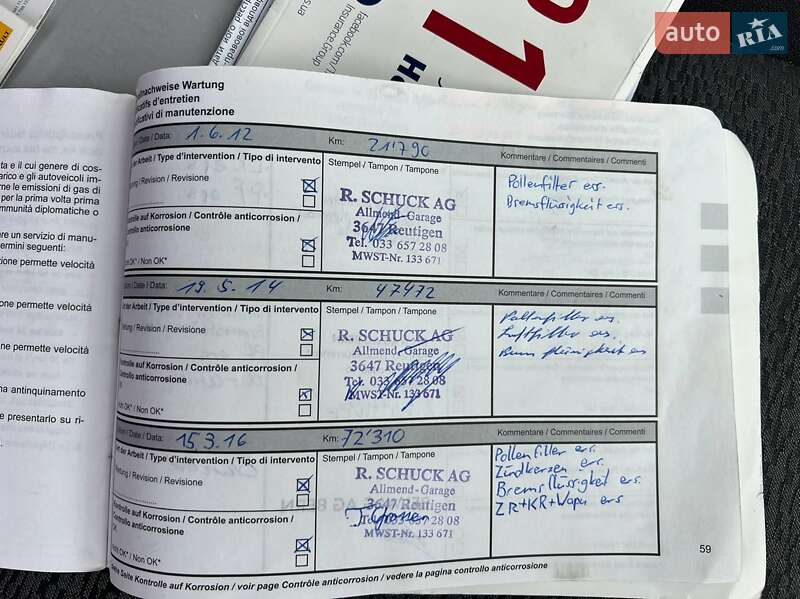 auto RIA .com
facebook.com/
Insurance Group
s.ua
дати його реєстр
справової відповід
1
nachweise Wartung
catifs d'entretien
ficativi di manutenzione
Date / Data: 1.6.12 Km: 21'790 Kommentare / Commentaires / Commenti
der Arbeit / Type d'intervention / Tipo di intervento
Stempel / Tampon / Tampone
/ Revision / Revisione
R. SCHUCK AG
Allmend-Garage
3647 Reutigen
Tel. 033 657 28 08
MWST-Nr. 133 671
Pollenfilter ers.
Bremsflüssigkeit ers.
Kontrolle auf Korrosion / Contrôle anticorrosion /
Controllo anticorrosione
OK* / Non OK*
Date / Data: 19.5.14 Km: 47472 Kommentare / Commentaires / Commenti
der Arbeit / Type d'intervention / Tipo di intervento
Stempel / Tampon / Tampone
/ Revision / Revisione
R. SCHUCK AG
Allmend-Garage
3647 Reutigen
Tel. 033 657 28 08
MWST-Nr. 133 671
Pollenfilter ers.
Luftfilter ers.
Kontrolle auf Korrosion / Contrôle anticorrosion /
Controllo anticorrosione
OK* / Non OK*
Date / Data: 15.3.16 Km: 72'310 Kommentare / Commentaires / Commenti
Art der Arbeit / Type d'intervention / Tipo di intervento
Stempel / Tampon / Tampone
Wartung / Revision / Revisione
R. SCHUCK AG
Allmend-Garage
3647 Reutigen
Tel. 033 657 28 08
MWST-Nr. 133 671
Pollenfilter ers.
Zündkerzen ers.
Bremsflüssigkeit ers.
ZR+KR+Wapu ers
Kontrolle auf Korrosion / Contrôle anticorrosion /
Controllo anticorrosione
Nicht OK* / Non OK*
Siehe Seite Kontrolle auf Korrosion / voir page Contrôle anticorrosion / vedere la pagina controllo anticorrosione
59
ta e il cui genere di cos-
arico e gli autoveicoli im-
me le emissioni di gas di
per la prima volta prima
mmunità diplomatiche o
are un servizio di manu-
termini seguenti:
zione permette velocità
one permette velocità
ne permette velocità
na antinquinamento
e presentarlo su ri-